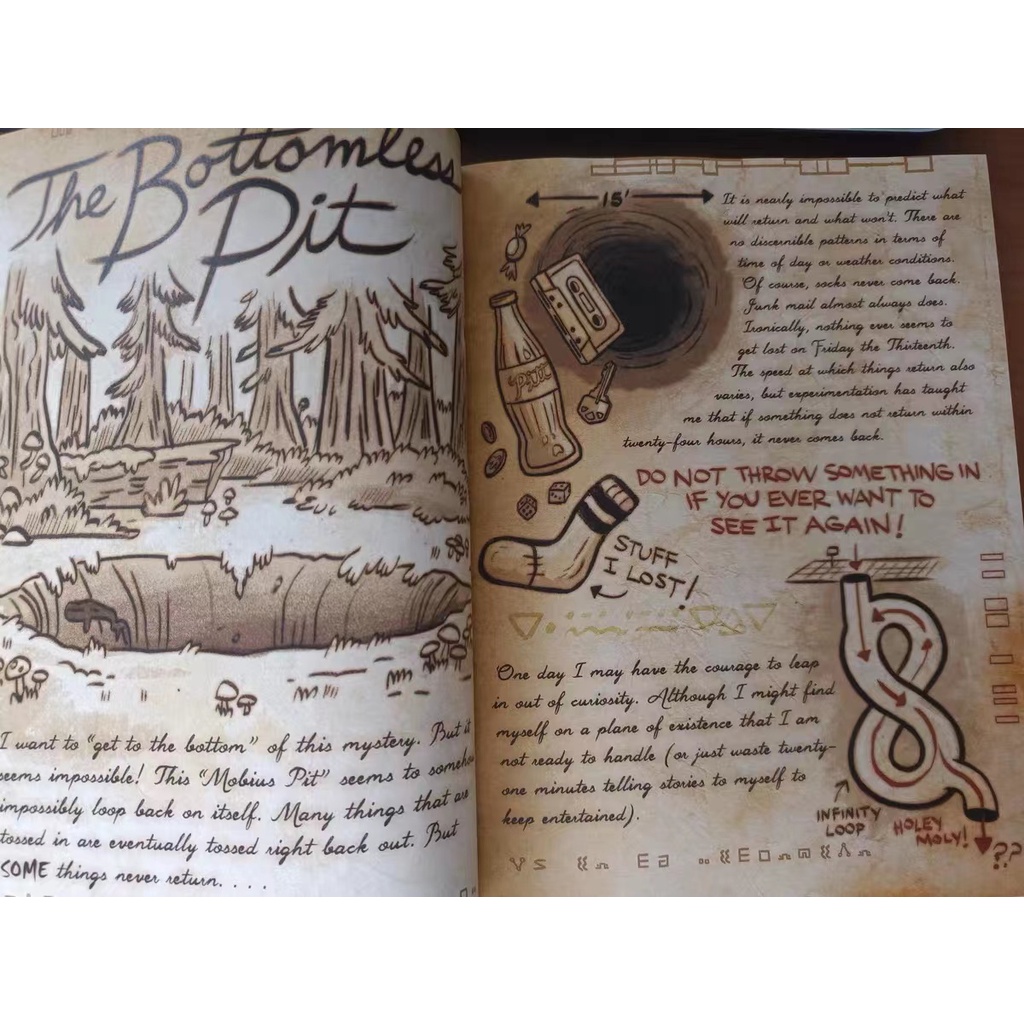 The Bottomless
Pit
I want to "get to the bottom" of this mystery. But it
seems impossible! This "Mobius Pit" seems to somehow
impossibly loop back on itself. Many things that are
tossed in are eventually tossed right back out. But
SOME things never return. . . .
15'
It is nearly impossible to predict what
will return and what won't. There are
no discernible patterns in terms of
time of day or weather conditions.
Of course, socks never come back.
Junk mail almost always does.
Ironically, nothing ever seems to
get lost on Friday the Thirteenth.
The speed at which things return also
varies, but experimentation has taught
me that if something does not return within
twenty-four hours, it never comes back.
Pitt
DO NOT THROW SOMETHING IN
IF YOU EVER WANT TO
SEE IT AGAIN!
STUFF
I LOST!
One day I may have the courage to leap
in out of curiosity. Although I might find
myself on a plane of existence that I am
not ready to handle (or just waste twenty-
one minutes telling stories to myself to
keep entertained).
INFINITY
LOOP
HOLEY
MOLY!
??